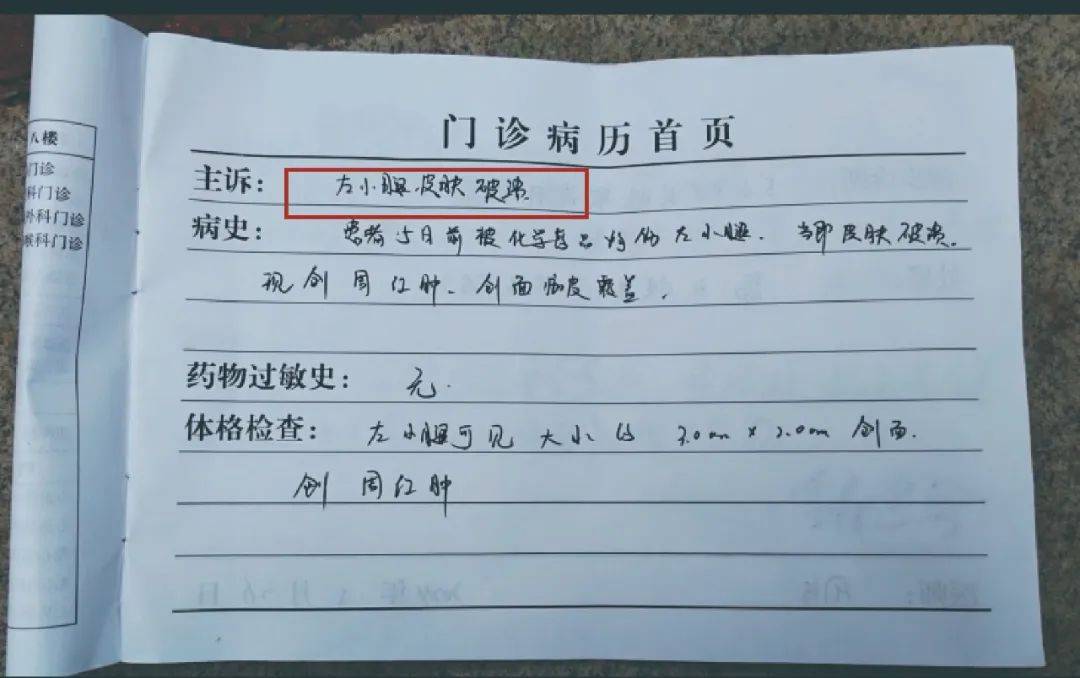 八楼
门诊
科门诊
外科门诊
喉科门诊
门诊病历首页
主诉: 左小腿皮肤破溃.
病史: 患者5日前被化学品灼伤左小腿. 当即皮肤破溃.
现创周红肿. 创面痂皮覆盖.
药物过敏史: 无.
体格检查: 左小腿可见大小约 3.0cm × 2.0cm 创面.
创周红肿